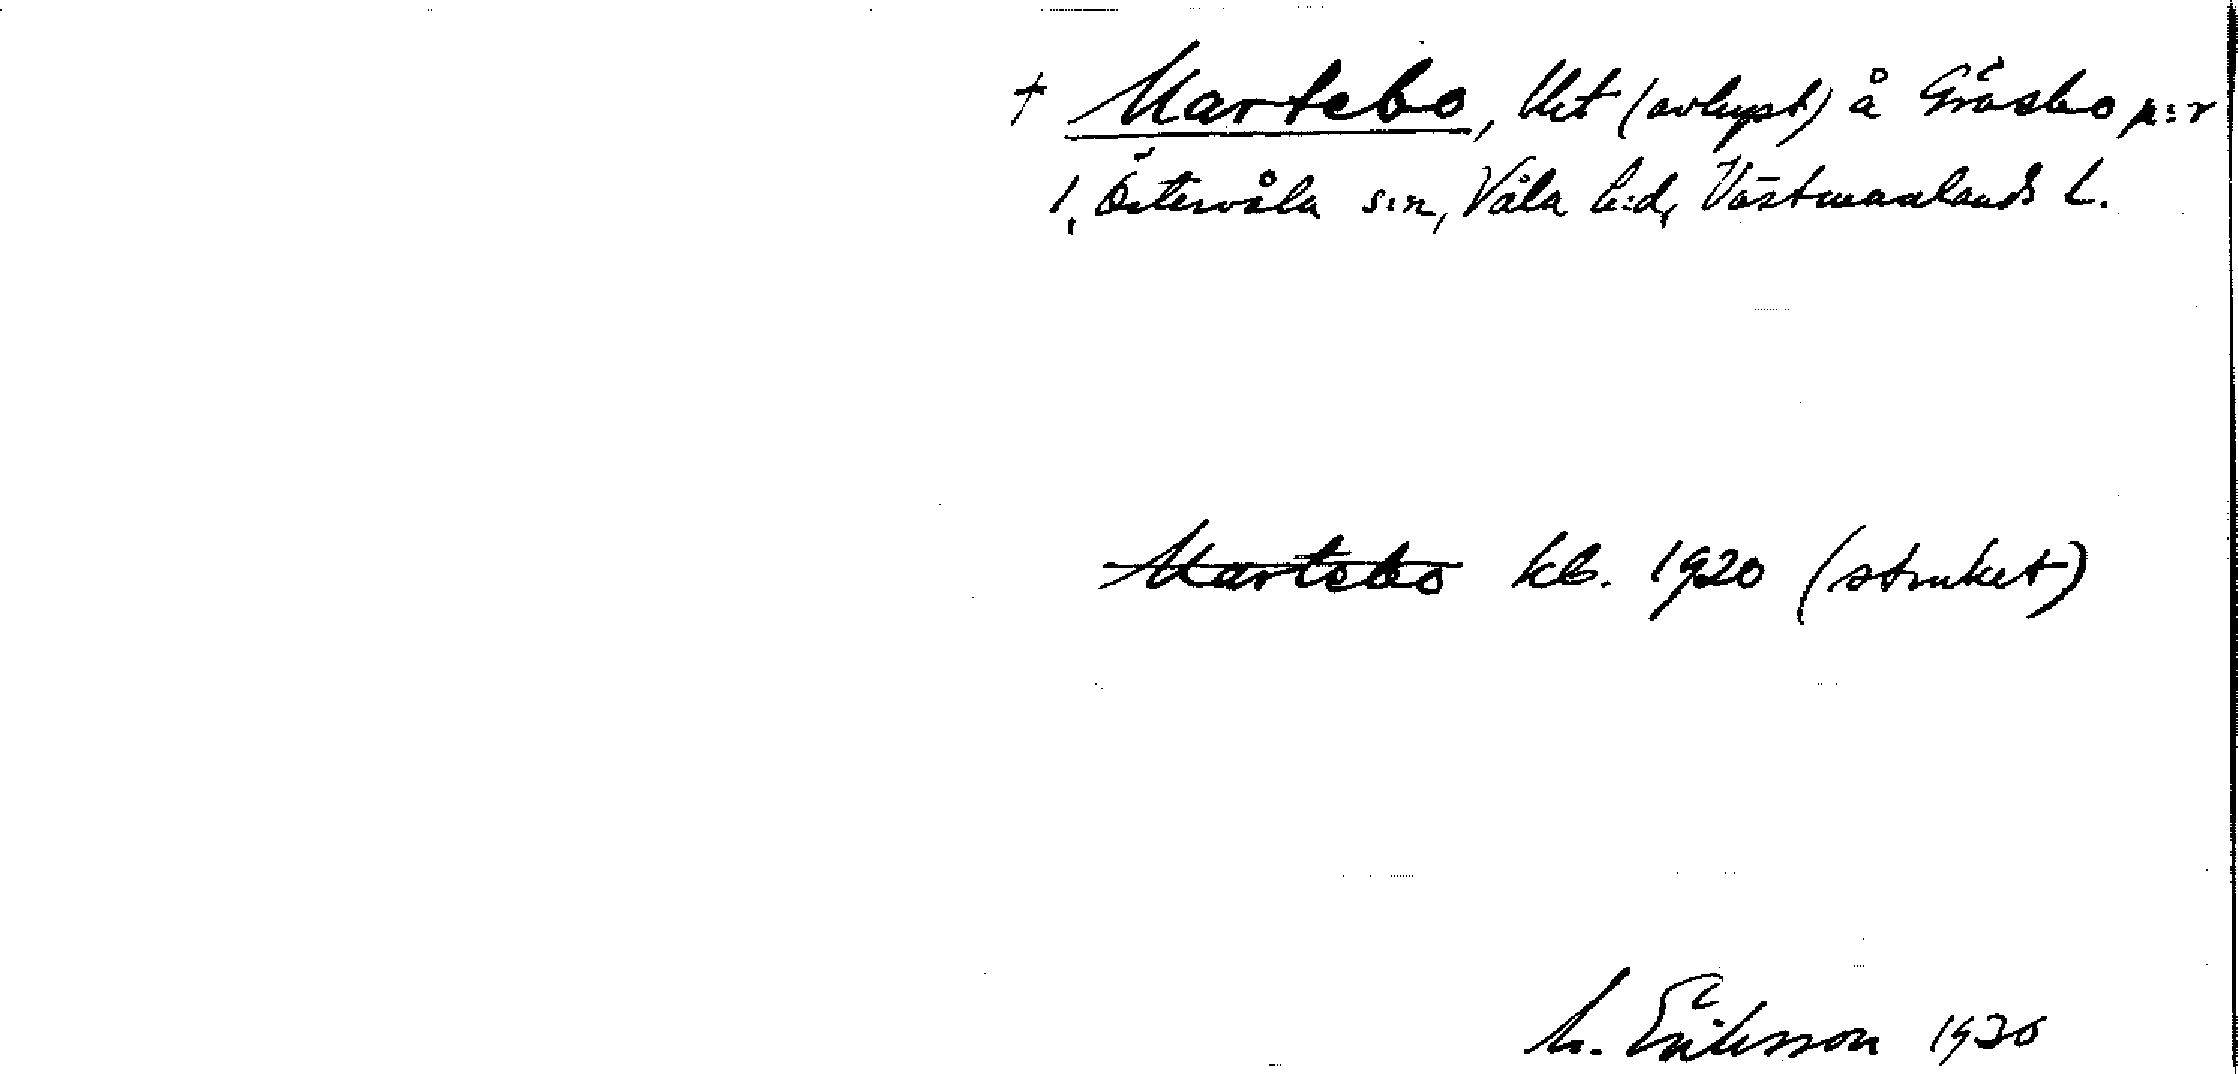 † Martebo, lht (avlyst) å Gräsbo n:r
1, Östervåla s:n, Våla h:d, Västmanlands l.
Martebo kb. 1920 (struket)
M. Eriksson 1930